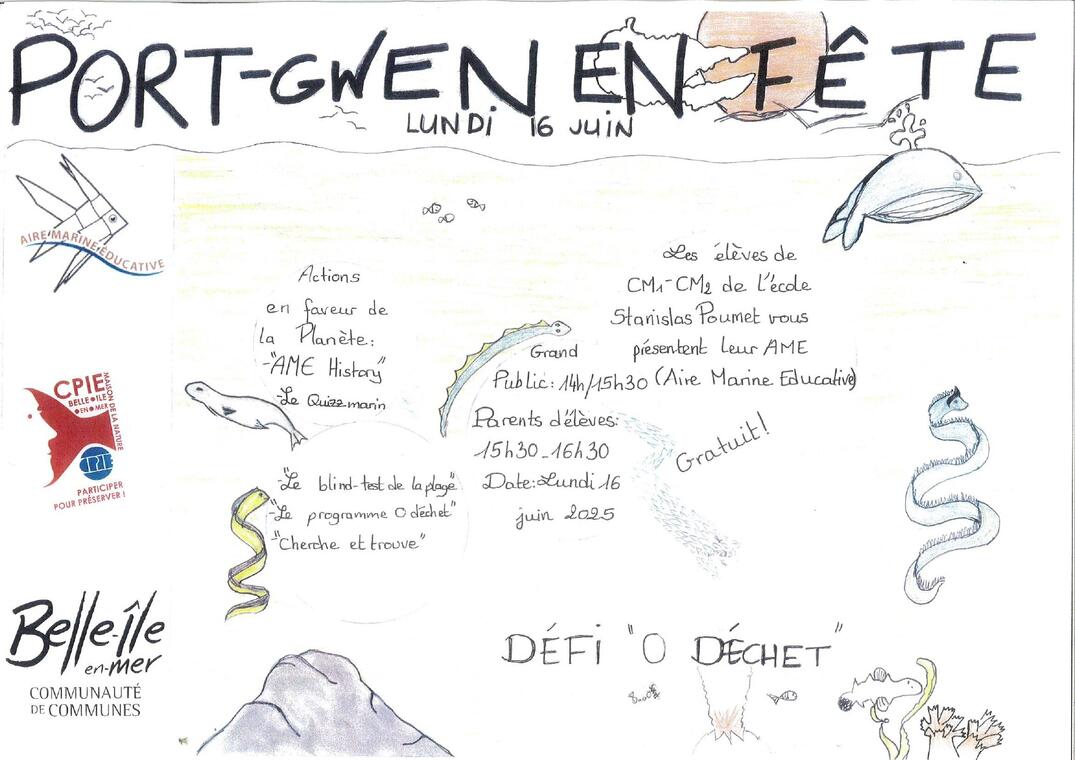 PORT-GWEN EN FÊTE
LUNDi 16 JUiN
AIRE MARINE ÉDUCATIVE
Actions
en faveur de
la Planète:
-"AME History"
-Le Quizz marin
-"Le blind-test de la plage"
-"Le programme 0 déchet"
-"Cherche et trouve"
Les élèves de
CM1-CM2 de l'école
Stanislas Poumet vous
présentent leur AME
(Aire Marine Educative)
Grand
Public: 14h/15h30
Parents d'élèves:
15h30-16h30
Date: Lundi 16
juin 2025
Gratuit!
CPIE
BELLE-ILE
EN MER
MAISON DE LA NATURE
CPIE
PARTICIPER
POUR PRÉSERVER !
Belle-île
en-mer
COMMUNAUTÉ
DE COMMUNES
DÉFi "O DÉCHET"